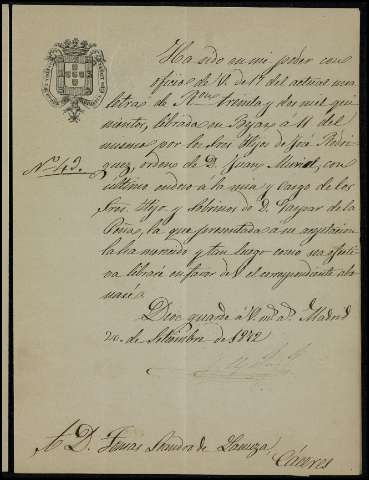 Ha sido en mi poder con
oficio de V. de 17 del actual una
letra de Rvon treinta y dos mil qui
nientos, librada en Bejar á 11 del
mismo por los Sres Hijos de José Rodri
guez, orden de D. Juan Muriel, con
último endoso á la mia y cargo de los
Sres. Hijo y Sobrinos de D. Gaspar de la
Peña, la que presentada a su aceptacion
la ha merecido y tan luego como sea efecti
va libraré en favor de V. el correspondiente
Nº 49.
Dios guarde á V. m. a. Madrid
20 de Setiembre de 1872
A D. Tomas de Lanuza,
Cáceres